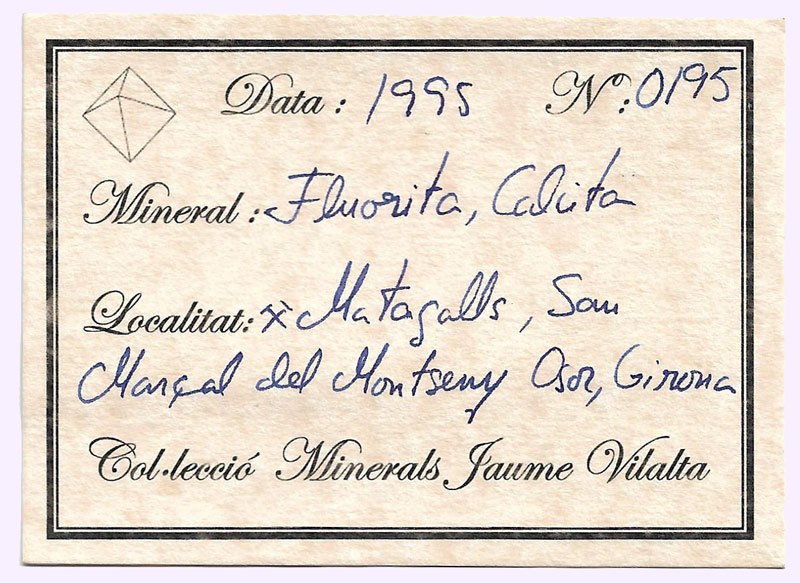 Data: 1995 Nº: 0195
Mineral: Fluorita, Calcita
Localitat: ⚒ Matagalls, San
Marçal del Montseny Osor, Girona
Col·lecció Minerals Jaume Vilalta